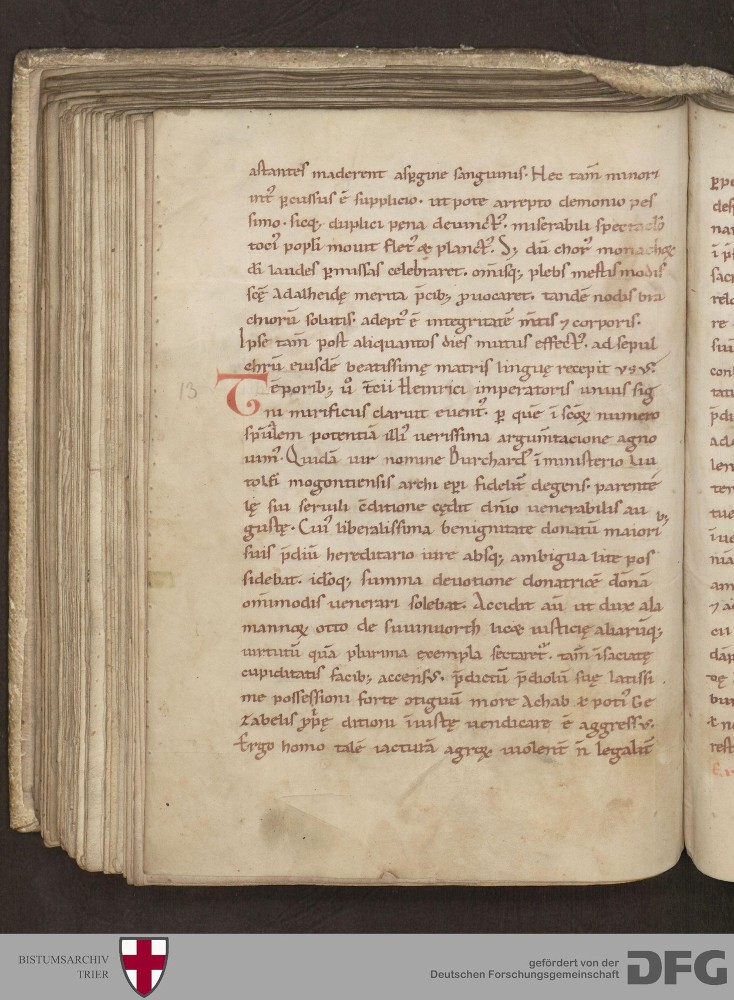 astantes maderent aspgine sanguinis. Hec tam̄ minori
int̾ pcussus ē supplicio. ut pote arrepto demonio pes
simo. sicq; duplici pena deuinct᷒. miserabili spectaclo
toci᷒ popli mouit flet᷒ & planct᷒. S; dū chor᷒ monachoꝝ
di laudes pmissas celebraret. om̄isq; plebs mestis modis
scę̄ Adalheidę merita p̄cib; ꝓuocaret. tandē nodis bra
chiorū solutis. adept᷒ ē integritatē m̄tis ⁊ corporis.
Ipse tam̄ post aliquantos dies mutus effect᷒. ad sepul
chrū eiusdē beatissimę matris linguę recepit usū.
13 Tēporib; u̾o t̾cii Heinrici imperatoris unius sig
ni mirificus claruit euent᷒. p que ī scōꝝ numero
spūalem potentiā illi᷒ uerissima argum̄tacione agno
uim᷒. Quidā uir nomine Burchard᷒ ī ministerio Liu
tolfi mogontiensis archi epi fidelit̾ degens. parente
lę sui seruili c̄ditione cędit dn̄io uenerabilis au
gustę. Cui᷒ liberalissima benignitate donatū maiori
b;
suis p̄diū hereditario iure absq; ambigua lite pos
sidebat. idoq; summa deuotione donatricē dōnā
om̄imodis uenerari solebat. Accidit aū ut dux ala
mannoꝝ otto de suuinuorth licę iusticię aliarūq;
uirtutū quā plurima exempla sectaret᷒. tam̄ īsaciatę
cupiditatis facib; accensus. p̄dictū p̄diolū suę latissi
me possessioni forte ɔtiguū more Achab & poti᷒ Ge
zabelis ꝓprię ditioni īiustę uendicare ē aggressus.
Ergo homo talē iacturā agroꝝ uiolent̾ n̄ legalit̾
BISTUMSARCHIV
TRIER
gefördert von der
Deutschen Forschungsgemeinschaft
DFG